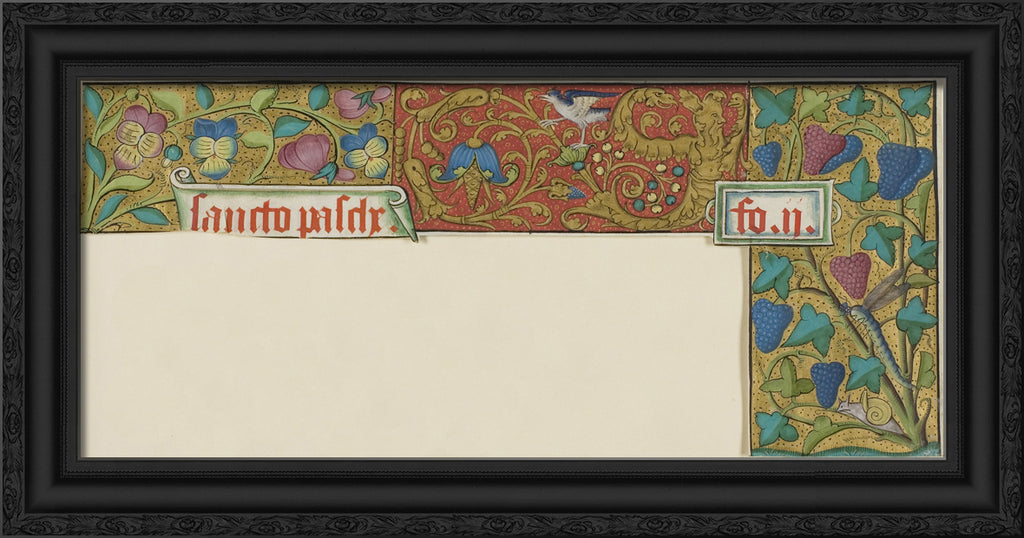 ſancto paſch.
fo.ij.